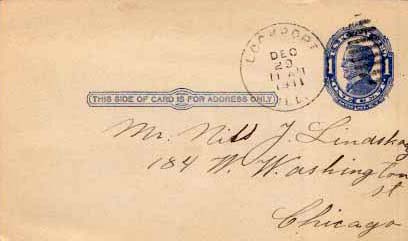 LOCKPORT
DEC
20
11 AM
1911
ILL.
1 1
ONE CENT
THIS SIDE OF CARD IS FOR ADDRESS ONLY
Mr. Nils J. Lindskog
184 W. Washington
St
Chicago